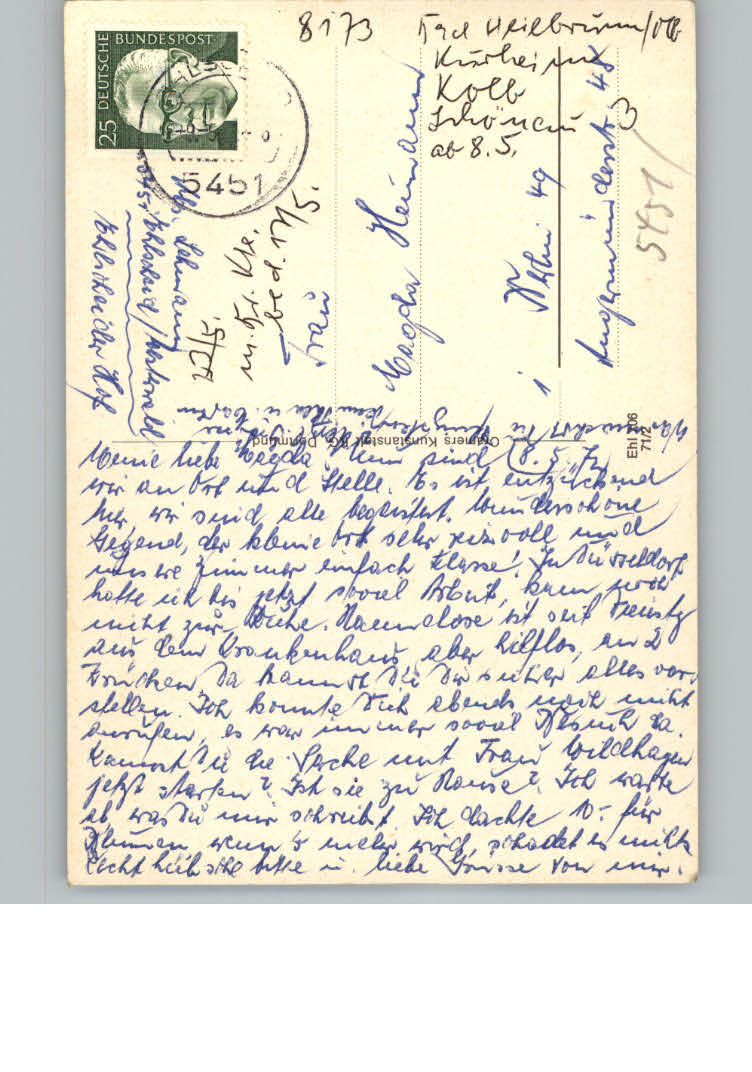 8173 Bad Heilbrunn/Obb
Kurheim
Kolb
Schönau
ab 8.5.
DEUTSCHE BUNDESPOST
25
5451
Lehmann
5451 Ehlscheid/Westerwald
Ehlscheider Hof
m. Fr.
bed. 17/5.
Frau
Magda Heimann
1 Berlin 49
Angermünderstr. 48
5451
Ehl 206
71/2
Cramers Kunstanstalt KG, Dortmund
8.5.72
Meine liebe Magda! Nun sind
wir an Ort und Stelle. Es ist entzückend
hier, wir sind alle begeistert. Wunderschöne
Gegend, der kleine Ort sehr reizvoll und
unsere Zimmer einfach Klasse! In Düsseldorf
hatte ich bis jetzt soviel Arbeit, kam
nicht zur Ruhe. Hannelore ist seit Dienstg
aus dem Krankenhaus, aber hilflos, an 2
Krücken. Da kannst Du Dir sicher alles vor-
stellen. Ich konnte Dich abends noch nicht
anrufen, es war immer soviel Besuch da.
Kannst Du die Sache mit Frau Wildhagen
jetzt starten? Ist sie zu Hause? Ich warte
ab, was Du mir schreibst. Ich dachte 10.- für
Blumen, wenn's mehr wird, schadet es nichts.
Recht hübsche bitte u. liebe Grüsse von mir.